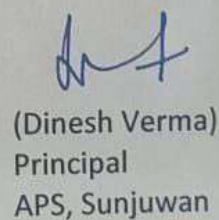 (Dinesh Verma)
Principal
APS, Sunjuwan